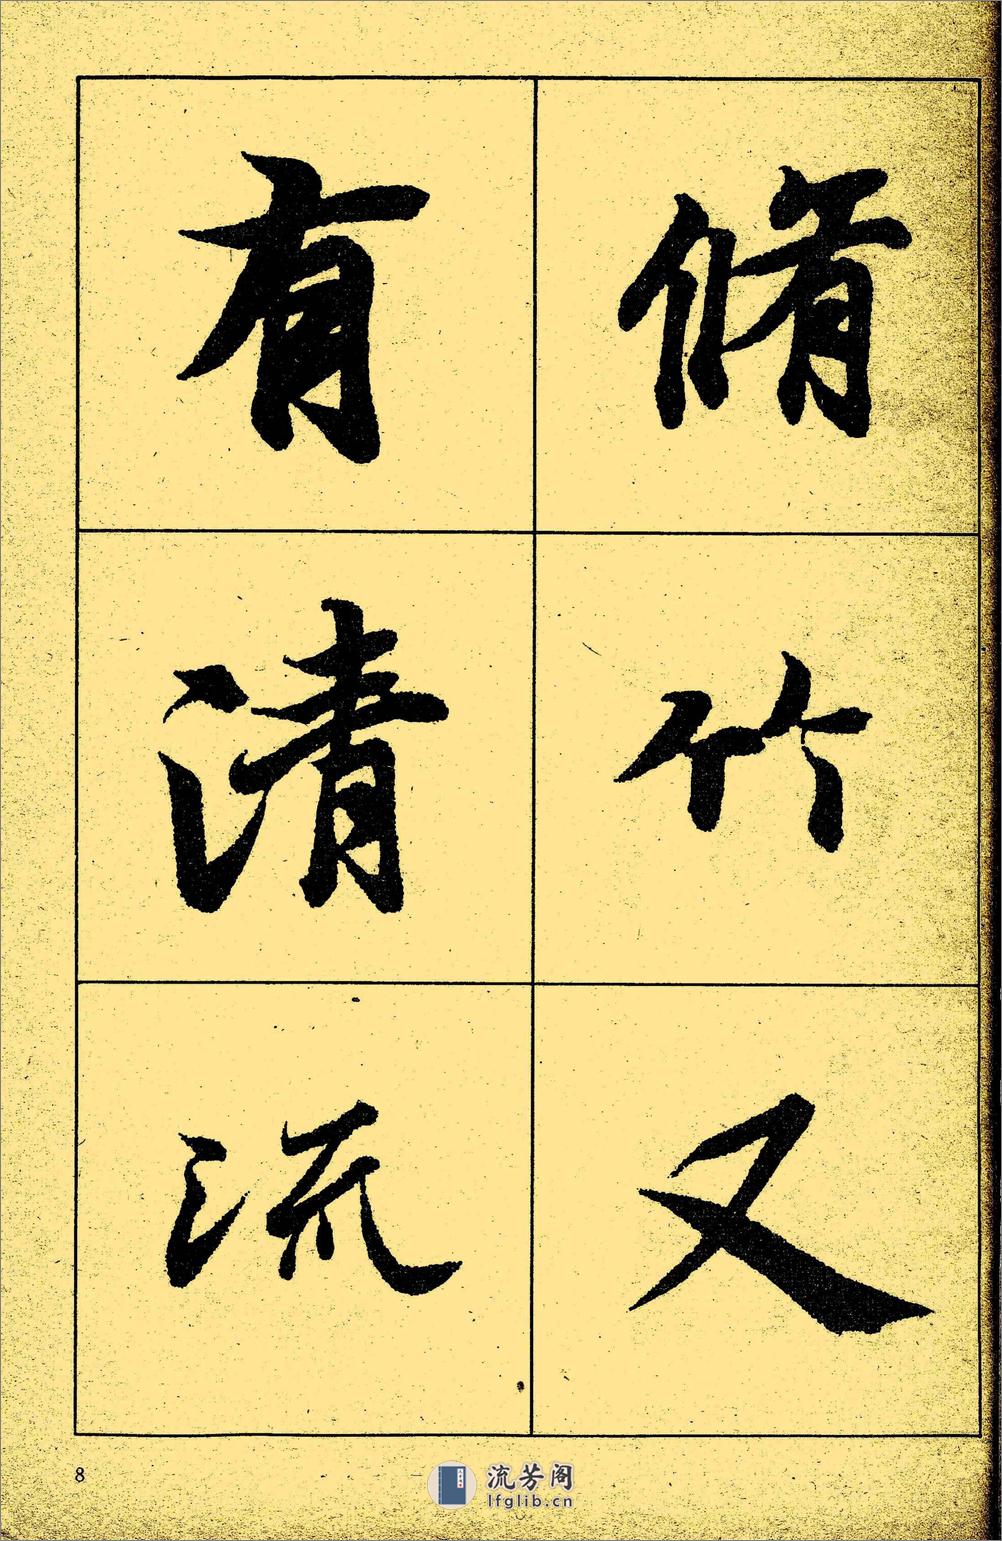 脩竹又
有清流
8
流芳阁
lfglib.cn